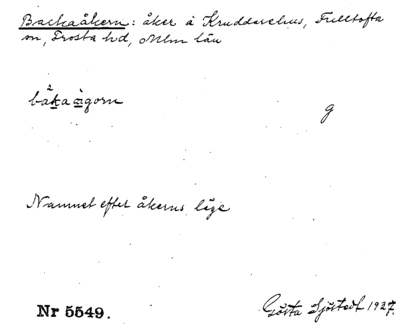 Backaåkern: åker å Kruddarehus, Fulltofta
sn, Frosta hd, Mlm län
g
Namnet efter åkerns läge
Nr 5549.
Gösta Sjöstedt 1927.